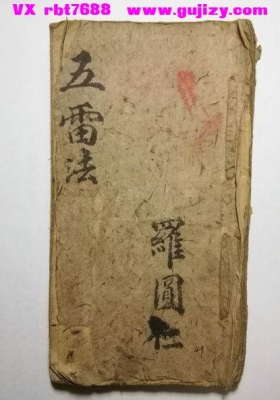 VX rbt7688 www.gujizy.com
五雷法
羅圓仁